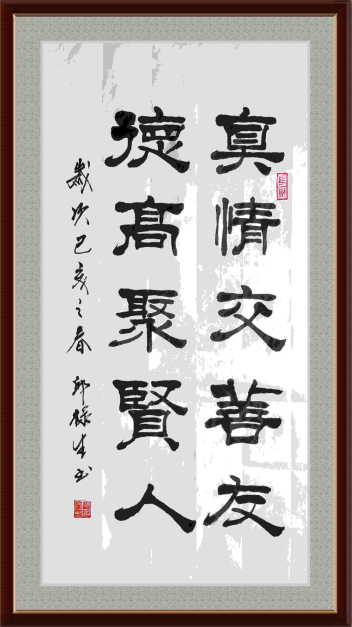 真情交善友
德高聚賢人
歲次己亥之春 邱錦生书